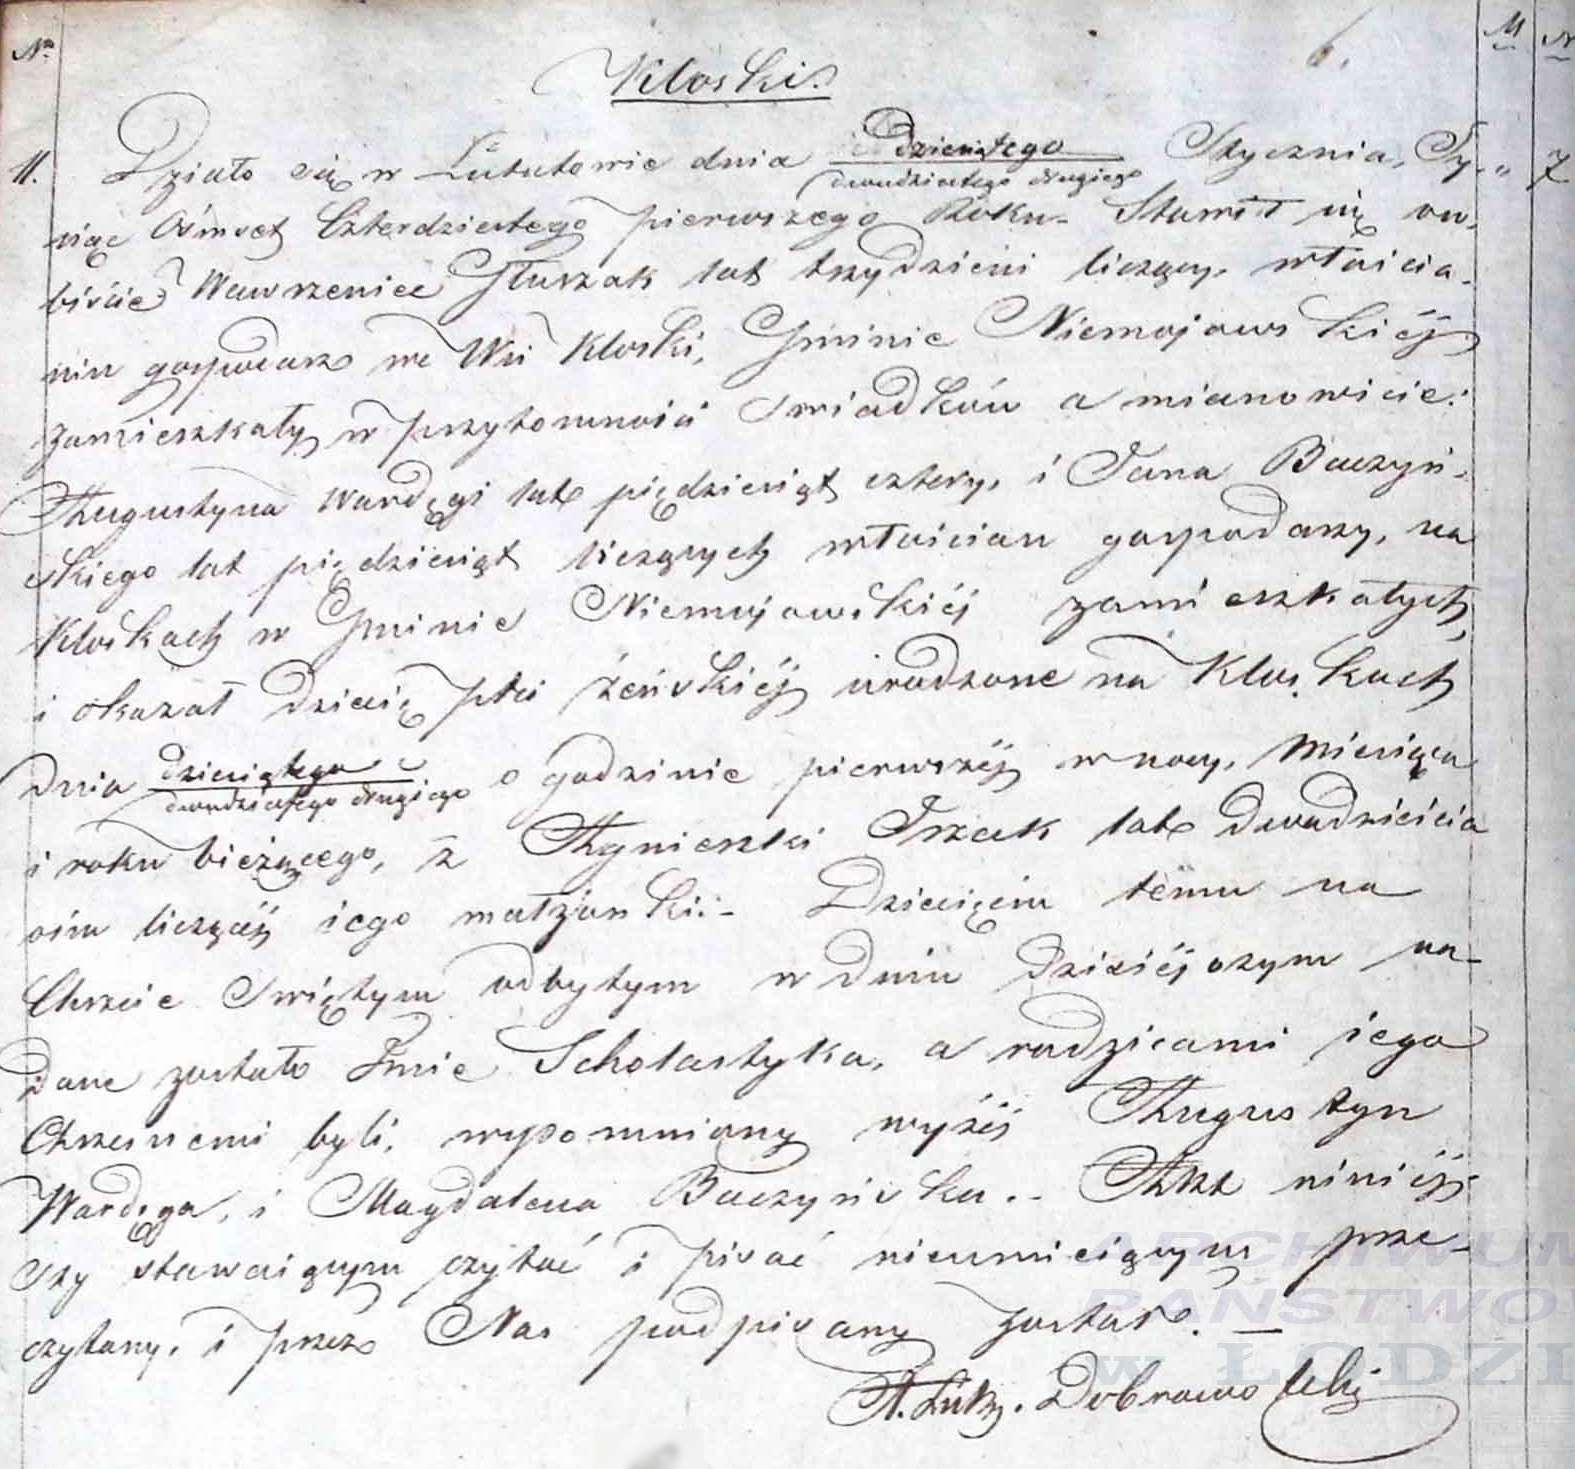 Nro
6.
M
N
Kloski.
11. Działo się w Lututowie dnia dziesiątego Stycznia, Ty-
dwudziestego drugiego
" 7
siąc Ośmset Czterdziestego pierwszego Roku. Stawił się oso-
biście Wawrzeniec Głuszak lat trzydzieści liczący, włościa-
nin gospodarz we Wsi Kloski, Gminie Niemojewskiéj
zamieszkały, w przytomności Swiadków a mianowicie:
Augustyna Wardęgi lat pięćdziesiąt cztery, i Jana Baczyń-
skiego lat pięćdziesiąt liczących włościan gospodarzy, na
Kloskach w Gminie Niemojewskiéj zamieszkałych,
i okazał Dziecię płci żeńskiéj urodzone na Kloskach
Dnia dziesiątego o godzinie pierwszéj w nocy, Miesiąca
dwudziestego drugiego
i roku bieżącego, z Agnieszki Trzak lat Dwadzieścia
ośm liczącéj iego małżonki. Dziecięciu temu na
Chrzcie Swiętym odbytym w Dniu Dzisiéjszym na-
dane zostało Imie Scholastyka, a rodzicami iego
Chrzesnemi byli, wspomniany wyżéj Augustyn
Wardęga, i Magdalena Baczyńska. Akt niniéj-
szy stawaiącym czytać i pisać nieumieiącym prze-
czytany, i przez Nas podpisany został. —
X. Dobrowolski
ARCHIWUM
PAŃSTWO
w ŁODZI